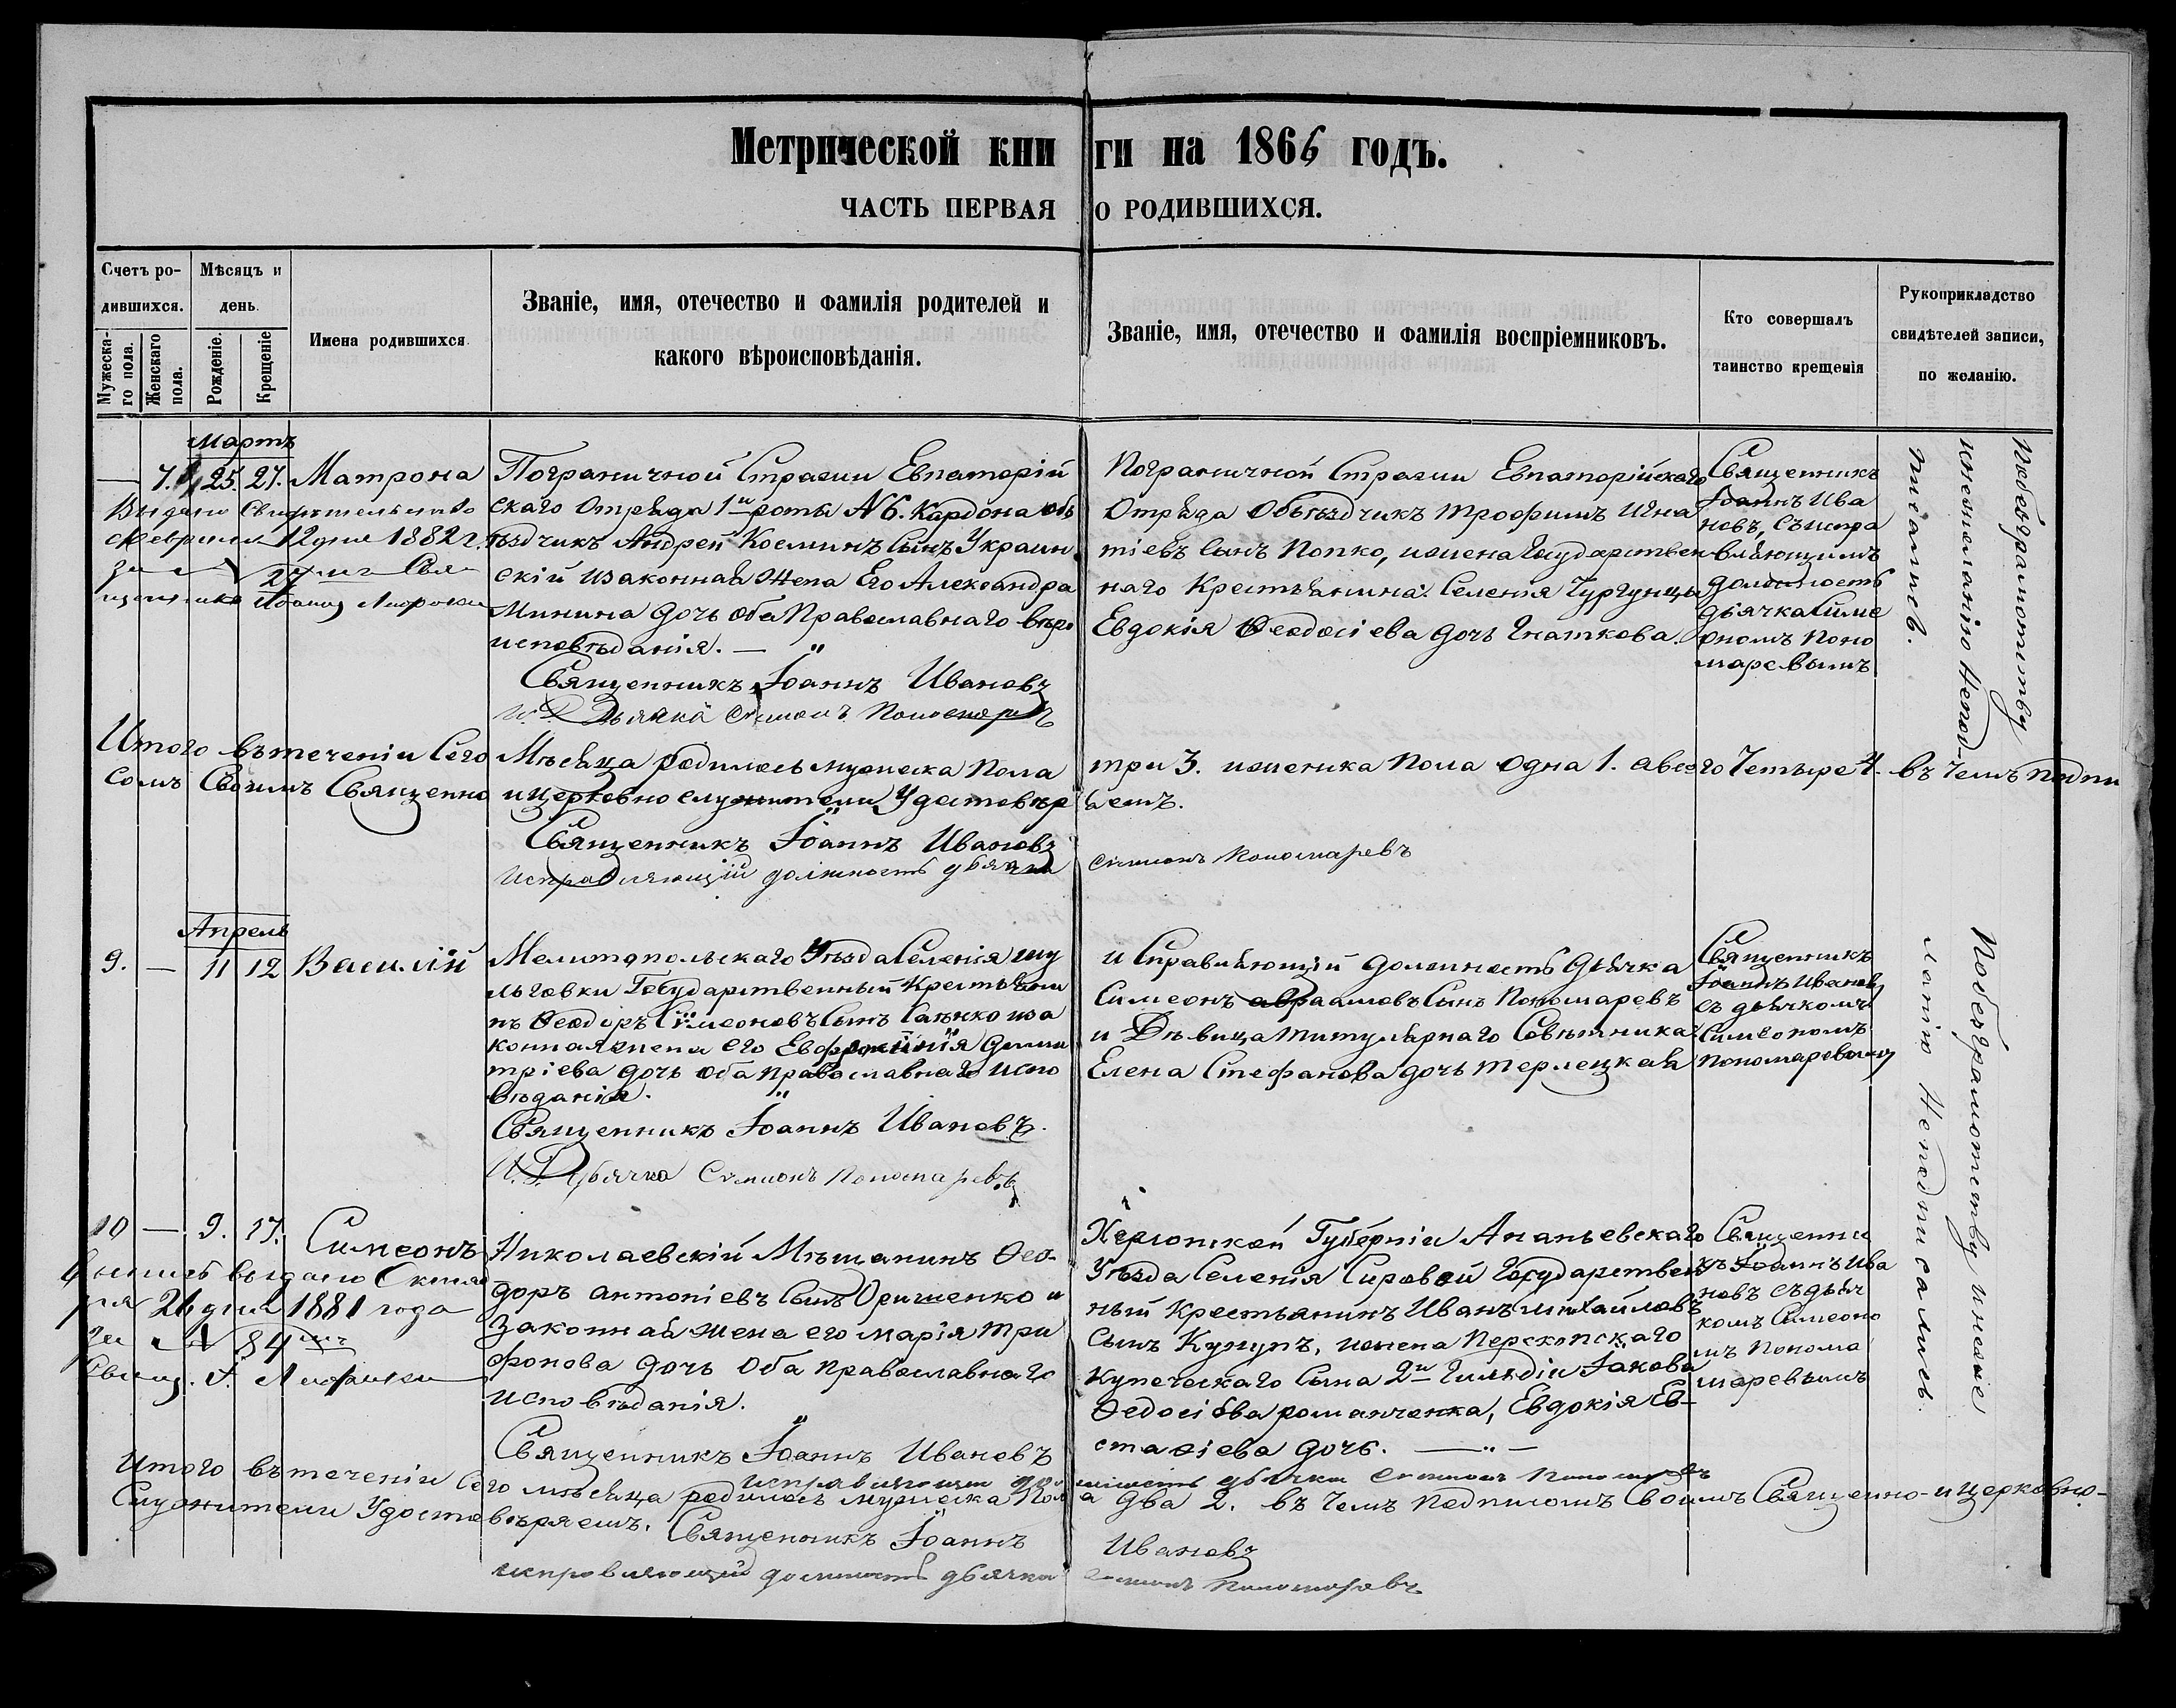 Метрической книги на 1866 годъ.
ЧАСТЬ ПЕРВАЯ О РОДИВШИХСЯ.
Счетъ ро-
дившихся.
Мужеска-
го пола.
Женскаго
пола.
Мѣсяцъ и
день.
Рожденіе.
Крещеніе
Имена родившихся
Званіе, имя, отечество и фамилія родителей и
какого вѣроисповѣданія.
Званіе, имя, отечество и фамилія воспріемниковъ.
Кто совершалъ
таинство крещенія
Рукоприкладство
свидѣтелей записи,
по желанію.
Мартъ
— 25. 27. Матрона
Выдано Свидѣтельство
Февраля 12 дня 1882 г.
за № 27
Пограничной Стражи Евпаторій
скаго Отряда 1й роты № 6. Кардона объ
ѣздчикъ Андрей Косминъ Сынъ Украин
скій изаконная Жена Его Александра
Минина дочь оба Православнаго вѣро
исповѣданія. —
Священникъ Іоаннъ Ивановъ
И. Д. Дьячка Симеонъ Пономаревъ
Пограничной Стражи Евпаторійскаго
Отряда Объѣздчикъ Трофимъ Игна
тіевъ Сынъ Попко, ижена Государствен
наго Крестьянина Селенія Чургунцы
Евдокія Ѳеодосіева дочь Гнаткова.
Священникъ
Іоаннъ Ива
новъ, съ испра
вляющимъ
должность
дьячка Симе
ономъ Поно
маревымъ
Побезграмотству
инежеланію Непод-
писались.
Итого въ теченіи Сего Мѣсяца родилось мужеска Пола три 3. иженска Пола одна 1. авсего Четыре 4. въ Чемъ подпи
сомъ Своимъ Священно ицерковно служители Удостовѣряемъ.
Священникъ Іоаннъ Ивановъ
Исправляющій должность дьячка Симеонъ Пономаревъ
Апрель
9. — 11 12 Василій
Мелитопольскаго Уѣзда Селенія Шу
льговки Государственный Крестьяни
нъ Ѳеодоръ Симеоновъ Сынъ иза
конная жена его Ефросинія Дими
тріева дочь оба православнаго испо
вѣданія.
Священникъ Іоаннъ Ивановъ.
И. Д. Дьячка Симеонъ Пономаревъ
и Справляющій должность дьячка
Симеонъ авраамовъ Сынъ Пономаревъ
и Дѣвица титулярнаго Совѣтника
Елена Стефанова дочь терлецкая
Священникъ
Іоаннъ Ивановъ
съ дьячкомъ
Симеономъ
Пономаревымъ
Побезграмотству инеже
ланію Неподписались.
10 — 9. 17. Симеонъ
выдано Октяб
ря 26 дня 1881 года
за № 84
Николаевскій Мѣщанинъ Ѳео-
доръ антоніевъ Сынъ Оришенко и
законная жена его марія Три
фонова дочь Оба православнаго
исповѣданія.
Священникъ Іоаннъ Ивановъ
исправляющій должность дьячка Симеонъ Пономаревъ
Херсонской Губерніи Ананьевскаго
Уѣзда Селенія Сировой Государствен
ный Крестьянинъ Иванъ михайловъ
Сынъ Кушунъ, ижена Перекопскаго
Купеческаго Сына 2й Гильдіи Іакова
Ѳедосіева романченка, Евдокія Ев-
стафіева дочь. —
Священни
къ Іоаннъ Ива
новъ съ дья
комъ Симеоно
мъ Понома
маревымъ
Итого въ теченіи Сего мѣсяца родилось мужеска Пола два 2. въ Чемъ подписомъ Своимъ Священно-ицерковно-
Служители Удостовѣряемъ. Священникъ Іоаннъ Ивановъ
исправляющій должность дьячка Симеонъ Пономаревъ